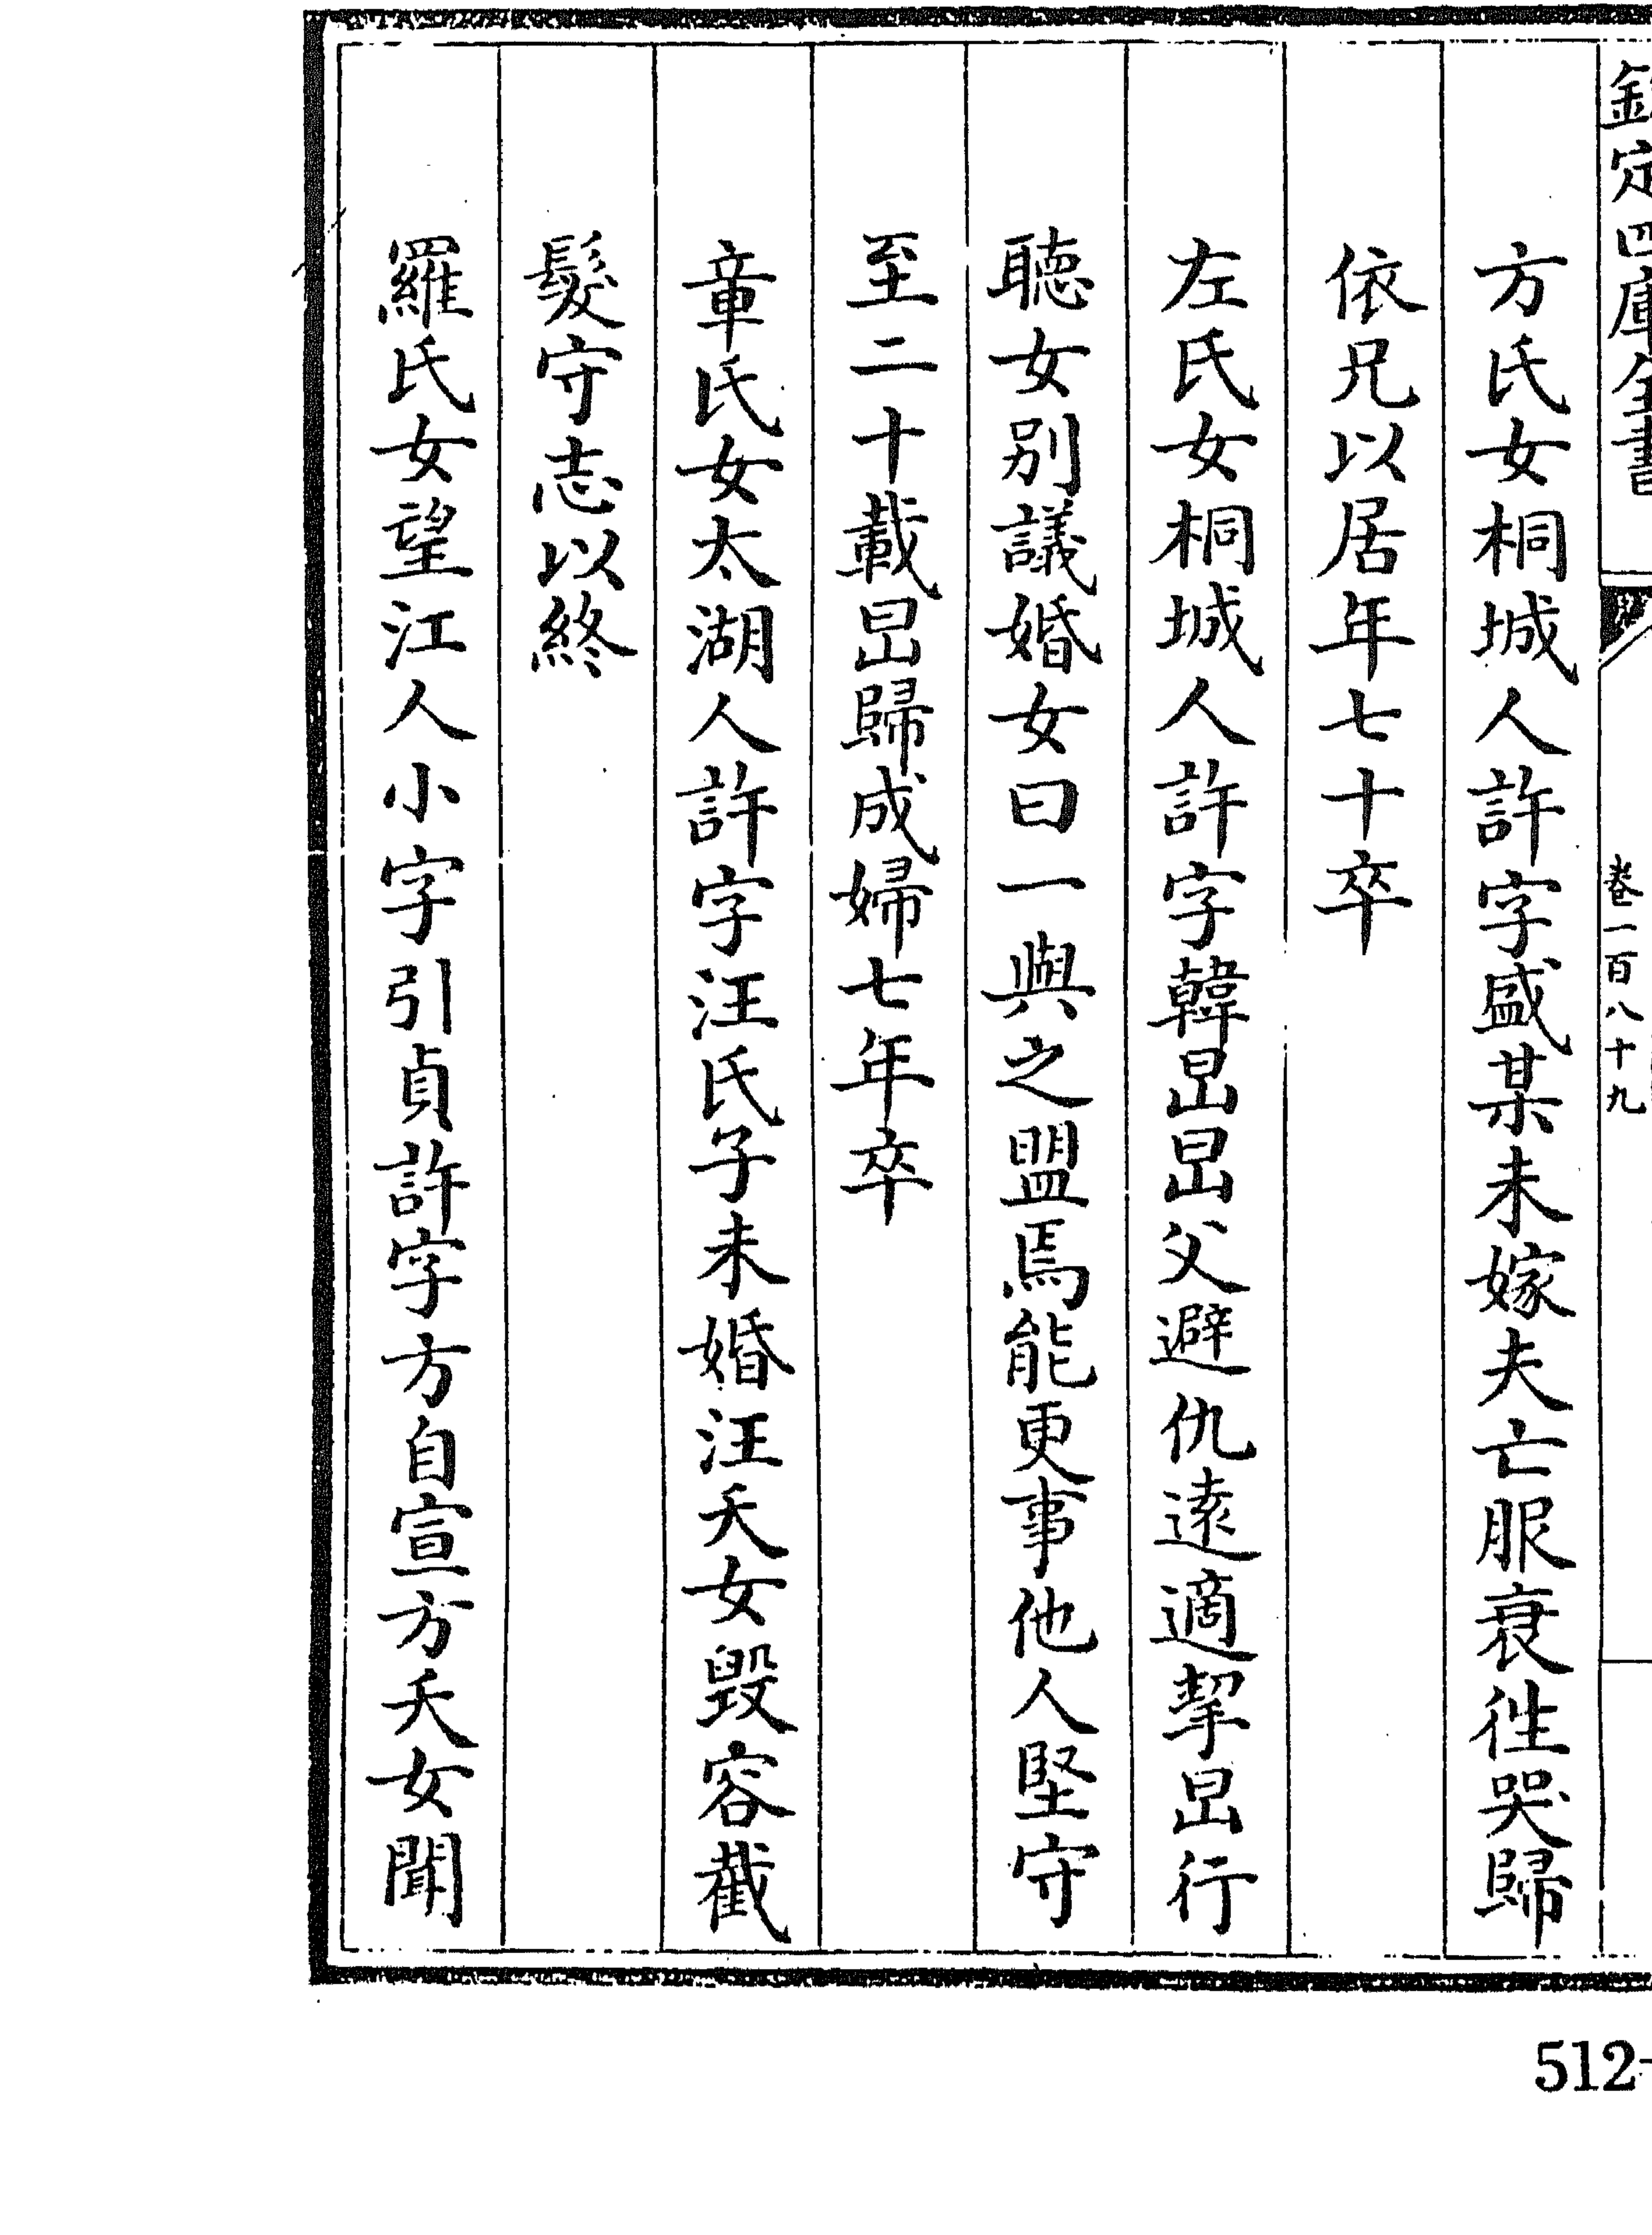 欽定四庫全書
卷一百八十九
方氏女桐城人許字盛某未嫁夫亡服衰徃哭歸
依兄以居年七十卒
左氏女桐城人許字韓昷昷父避仇逺適挈昷行
聴女别議婚女曰一與之盟焉能更事他人堅守
至二十載昷歸成婦七年卒
章氏女太湖人許字汪氏子未婚汪夭女毁容截
髮守志以終
羅氏女望江人小字引貞許字方自宣方夭女聞
512-